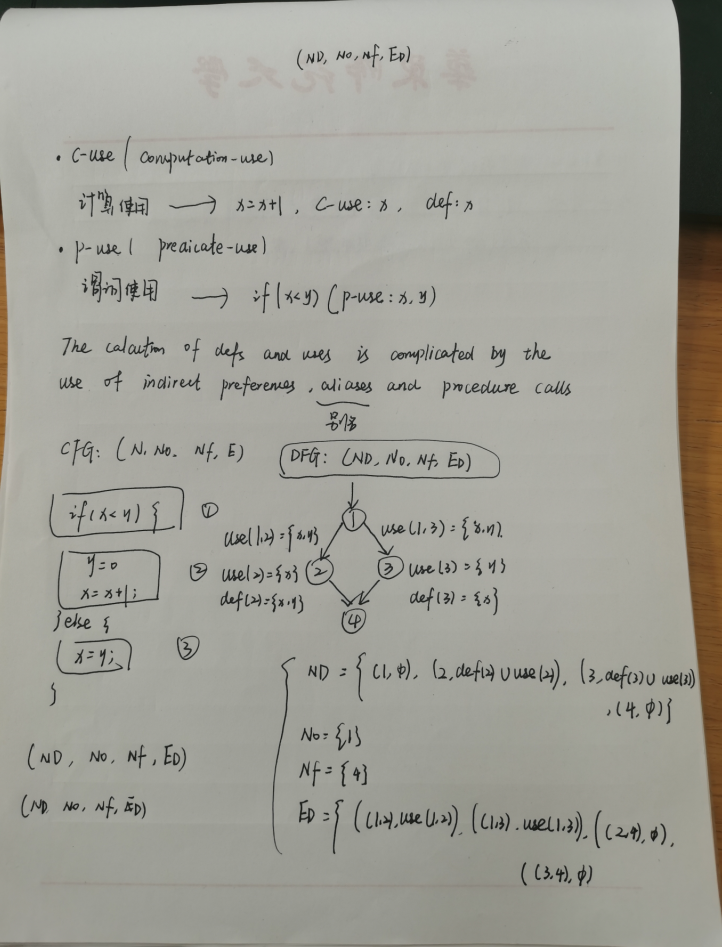 (ND, No, Nf, ED)
• C-use ( computation-use)
计算使用 → x=x+1, C-use: x, def: x
• P-use ( preaicate-use)
谓词使用 → if(x<y) (p-use: x, y)
The calcution of defs and uses is complicated by the
use of indirect preferenves, aliases and procedure calls
别名
CFG: (N, No, Nf, E)
DFG: (ND, No, Nf, ED)
if(x<y) { ①
y=0
x=x+1; ②
}else {
x=y; ③
}
①
use(1,2)={x,y} use(1,3)={x,y}
use(2)={x} ② ③ use(3)={y}
def(2)={x,y} def(3)={x}
④
ND = { (1, φ), (2, def(2) ∪ use(2)), (3, def(3) ∪ use(3))
, (4, φ)}
No={1}
Nf={4}
ED={ ((1,2), use(1,2)), ((1,3), use(1,3)), ((2,4), φ),
((3,4), φ)
(ND, No, Nf, ED)
(ND, No, Nf, ED)